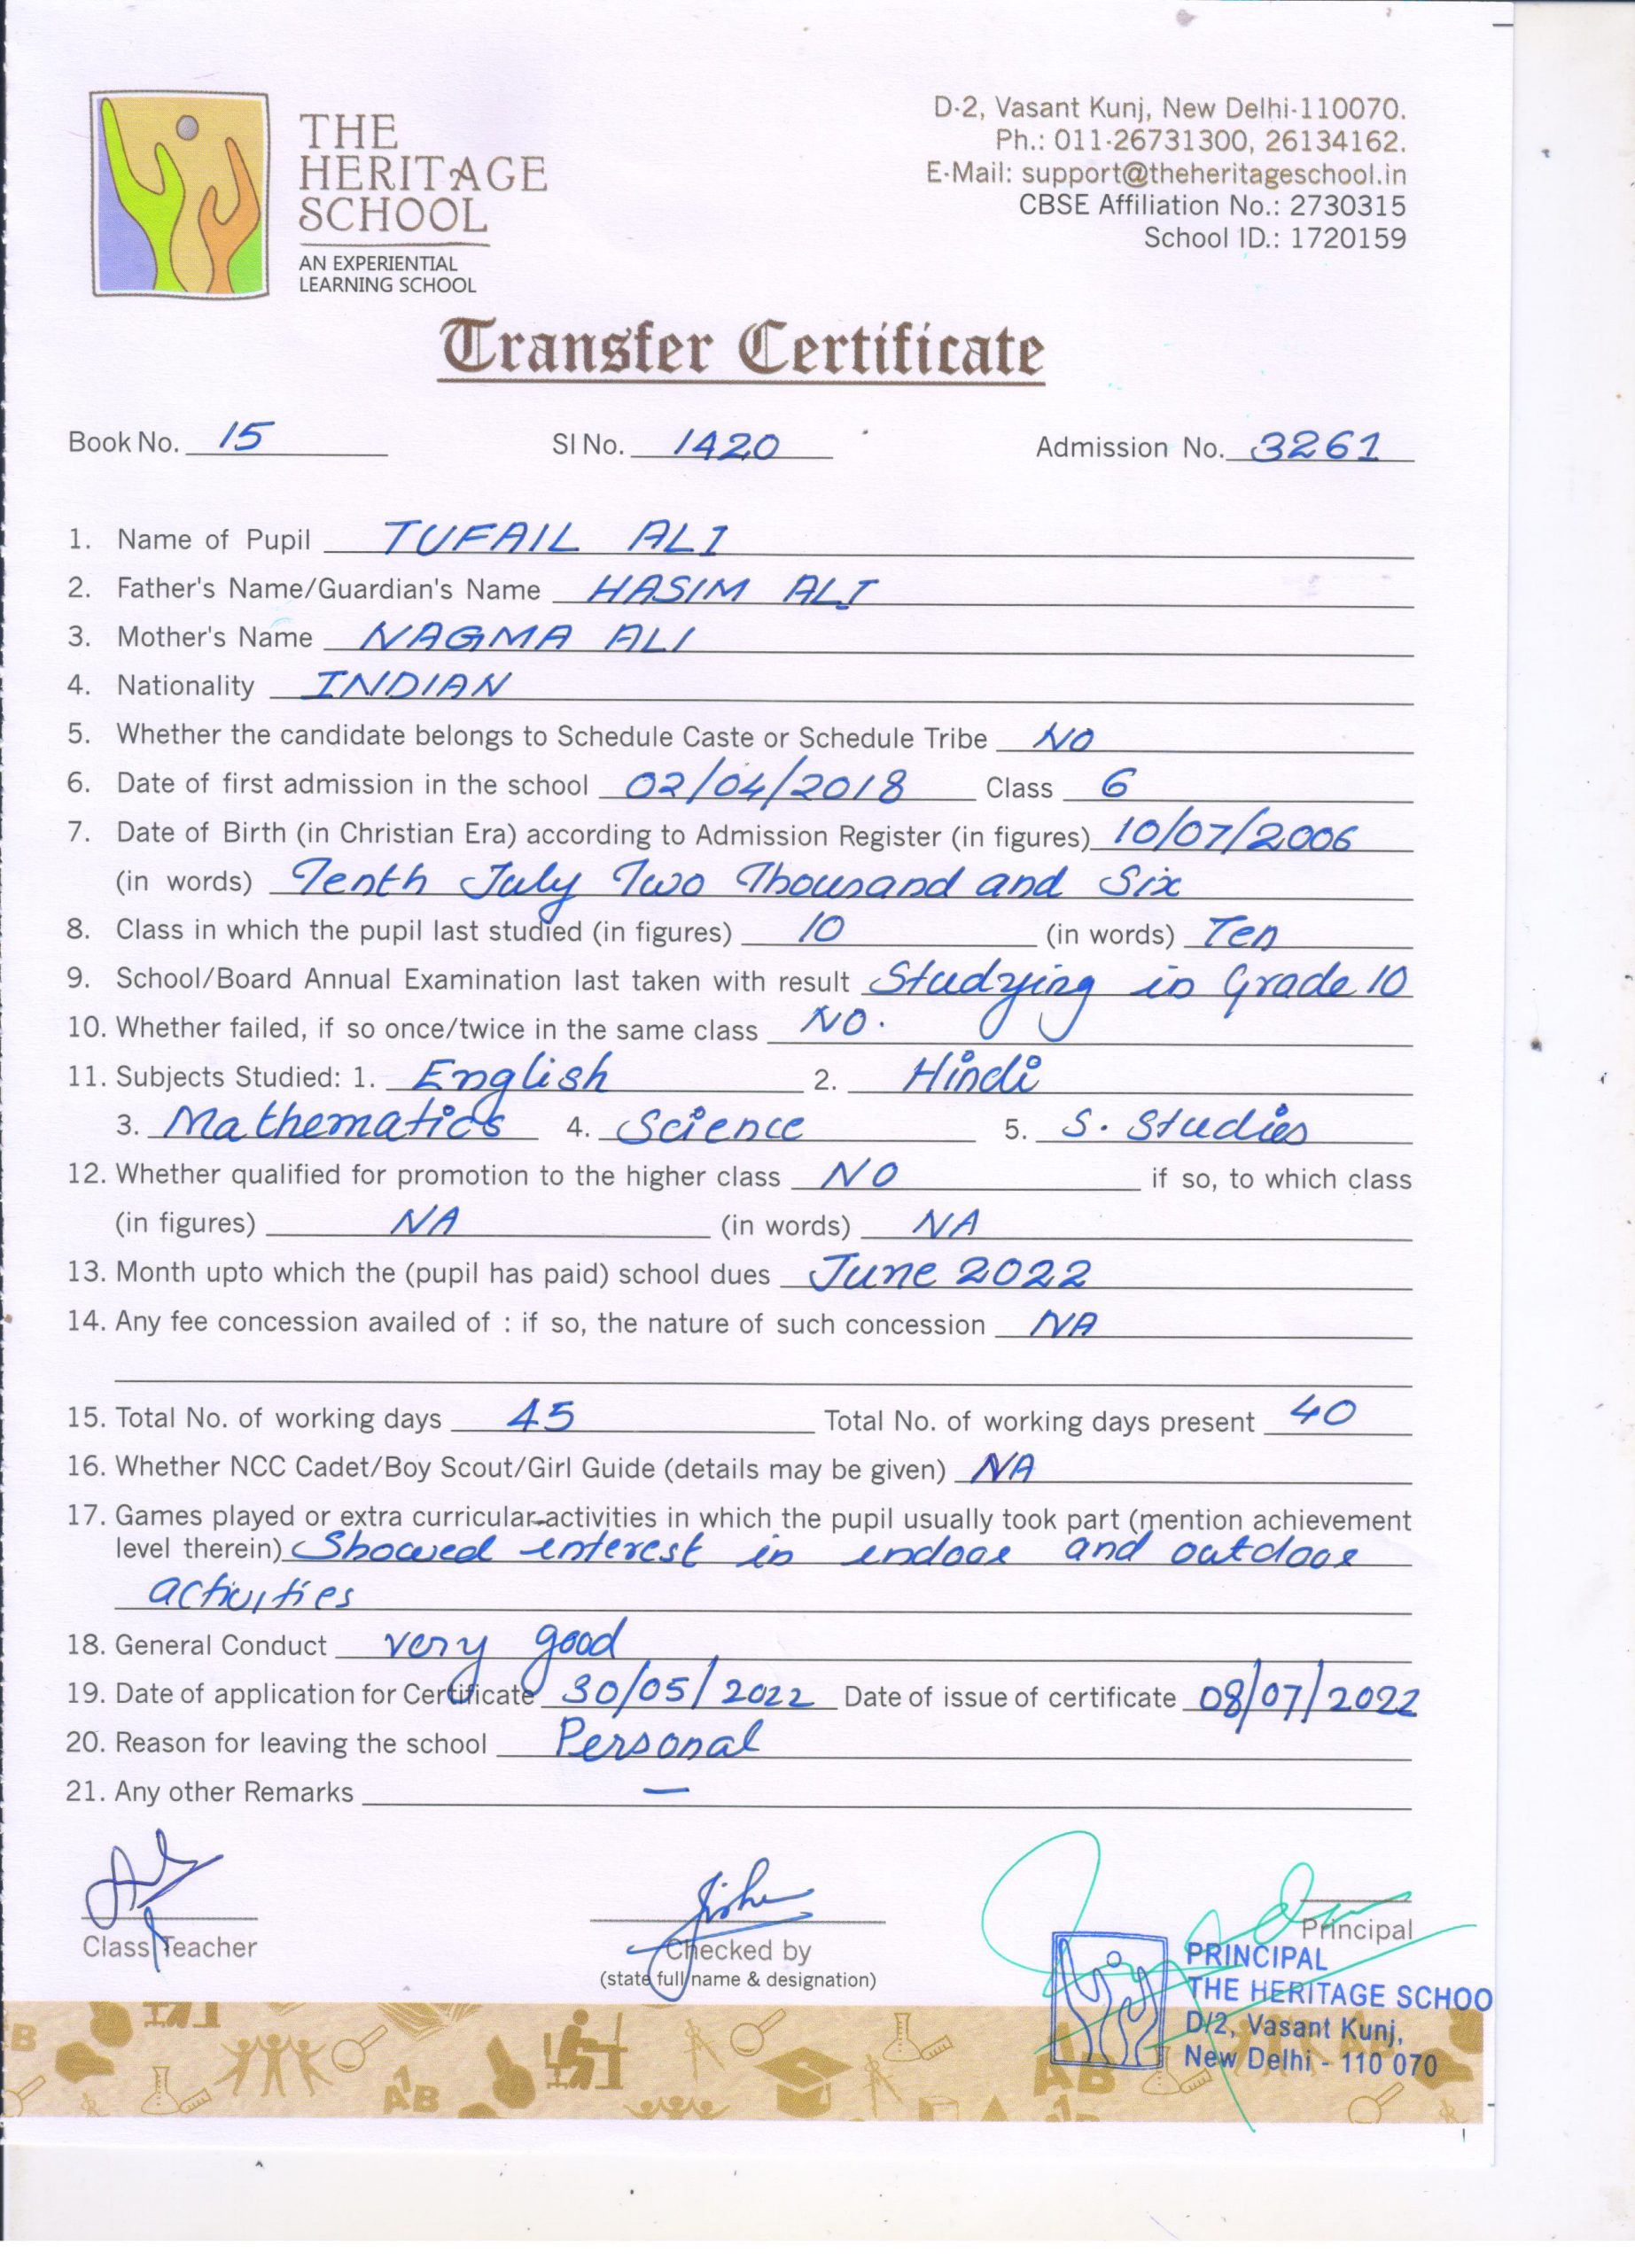 THE
HERITAGE
SCHOOL
AN EXPERIENTIAL
LEARNING SCHOOL
D-2, Vasant Kunj, New Delhi-110070.
Ph.: 011-26731300, 26134162.
E-Mail: support@theheritageschool.in
CBSE Affiliation No.: 2730315
School ID.: 1720159
Transfer Certificate
Book No. 15 Sl No. 1420 Admission No. 3261
1. Name of Pupil TUFAIL ALI
2. Father's Name/Guardian's Name HASIM ALI
3. Mother's Name NAGMA ALI
4. Nationality INDIAN
5. Whether the candidate belongs to Schedule Caste or Schedule Tribe NO
6. Date of first admission in the school 02/04/2018 Class 6
7. Date of Birth (in Christian Era) according to Admission Register (in figures) 10/07/2006
(in words) Tenth July Two Thousand and Six
8. Class in which the pupil last studied (in figures) 10 (in words) Ten
9. School/Board Annual Examination last taken with result Studying in Grade 10
10. Whether failed, if so once/twice in the same class NO.
11. Subjects Studied: 1. English 2. Hindi
3. Mathematics 4. Science 5. S. Studies
12. Whether qualified for promotion to the higher class NO if so, to which class
(in figures) NA (in words) NA
13. Month upto which the (pupil has paid) school dues June 2022
14. Any fee concession availed of : if so, the nature of such concession NA
15. Total No. of working days 45 Total No. of working days present 40
16. Whether NCC Cadet/Boy Scout/Girl Guide (details may be given) NA
17. Games played or extra curricular activities in which the pupil usually took part (mention achievement
level therein) Showed interest in indoor and outdoor
activities
18. General Conduct very good
19. Date of application for Certificate 30/05/2022 Date of issue of certificate 08/07/2022
20. Reason for leaving the school Personal
21. Any other Remarks —
Class Teacher
Checked by
(state full name & designation)
Principal
PRINCIPAL
THE HERITAGE SCHOO
D/2, Vasant Kunj,
New Delhi - 110 070